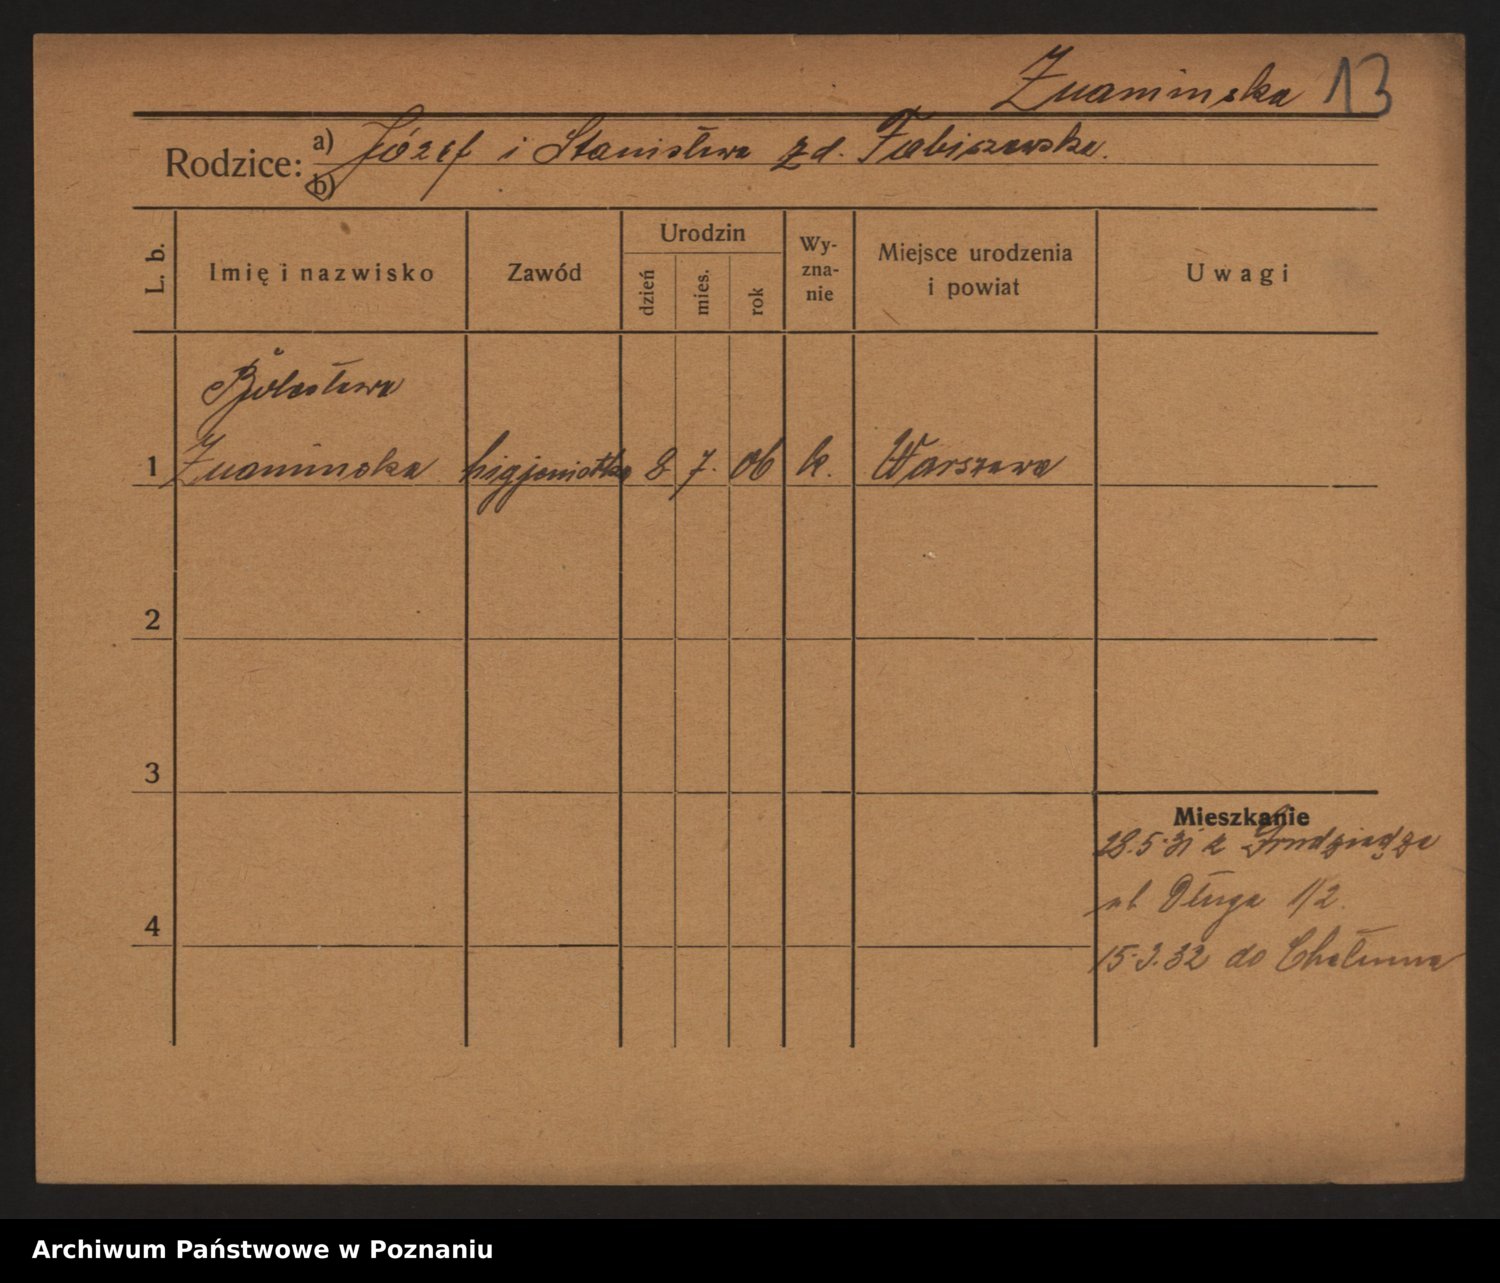 Znaminska 13
Rodzice: a) Józef i Stanisława zd. Fabiszewska.
b)
L. b.
Imię i nazwisko
Zawód
Urodzin
dzień
mies.
rok
Wy-
zna-
nie
Miejsce urodzenia
i powiat
Uwagi
Bolesława
1 Znaminska higjenistka 8 7. 06 k. Warszawa
2
3
Mieszkanie
28.5.31 z Grudziądza
ul Długa 1/2.
4
15.3.32 do Chełmna
Archiwum Państwowe w Poznaniu